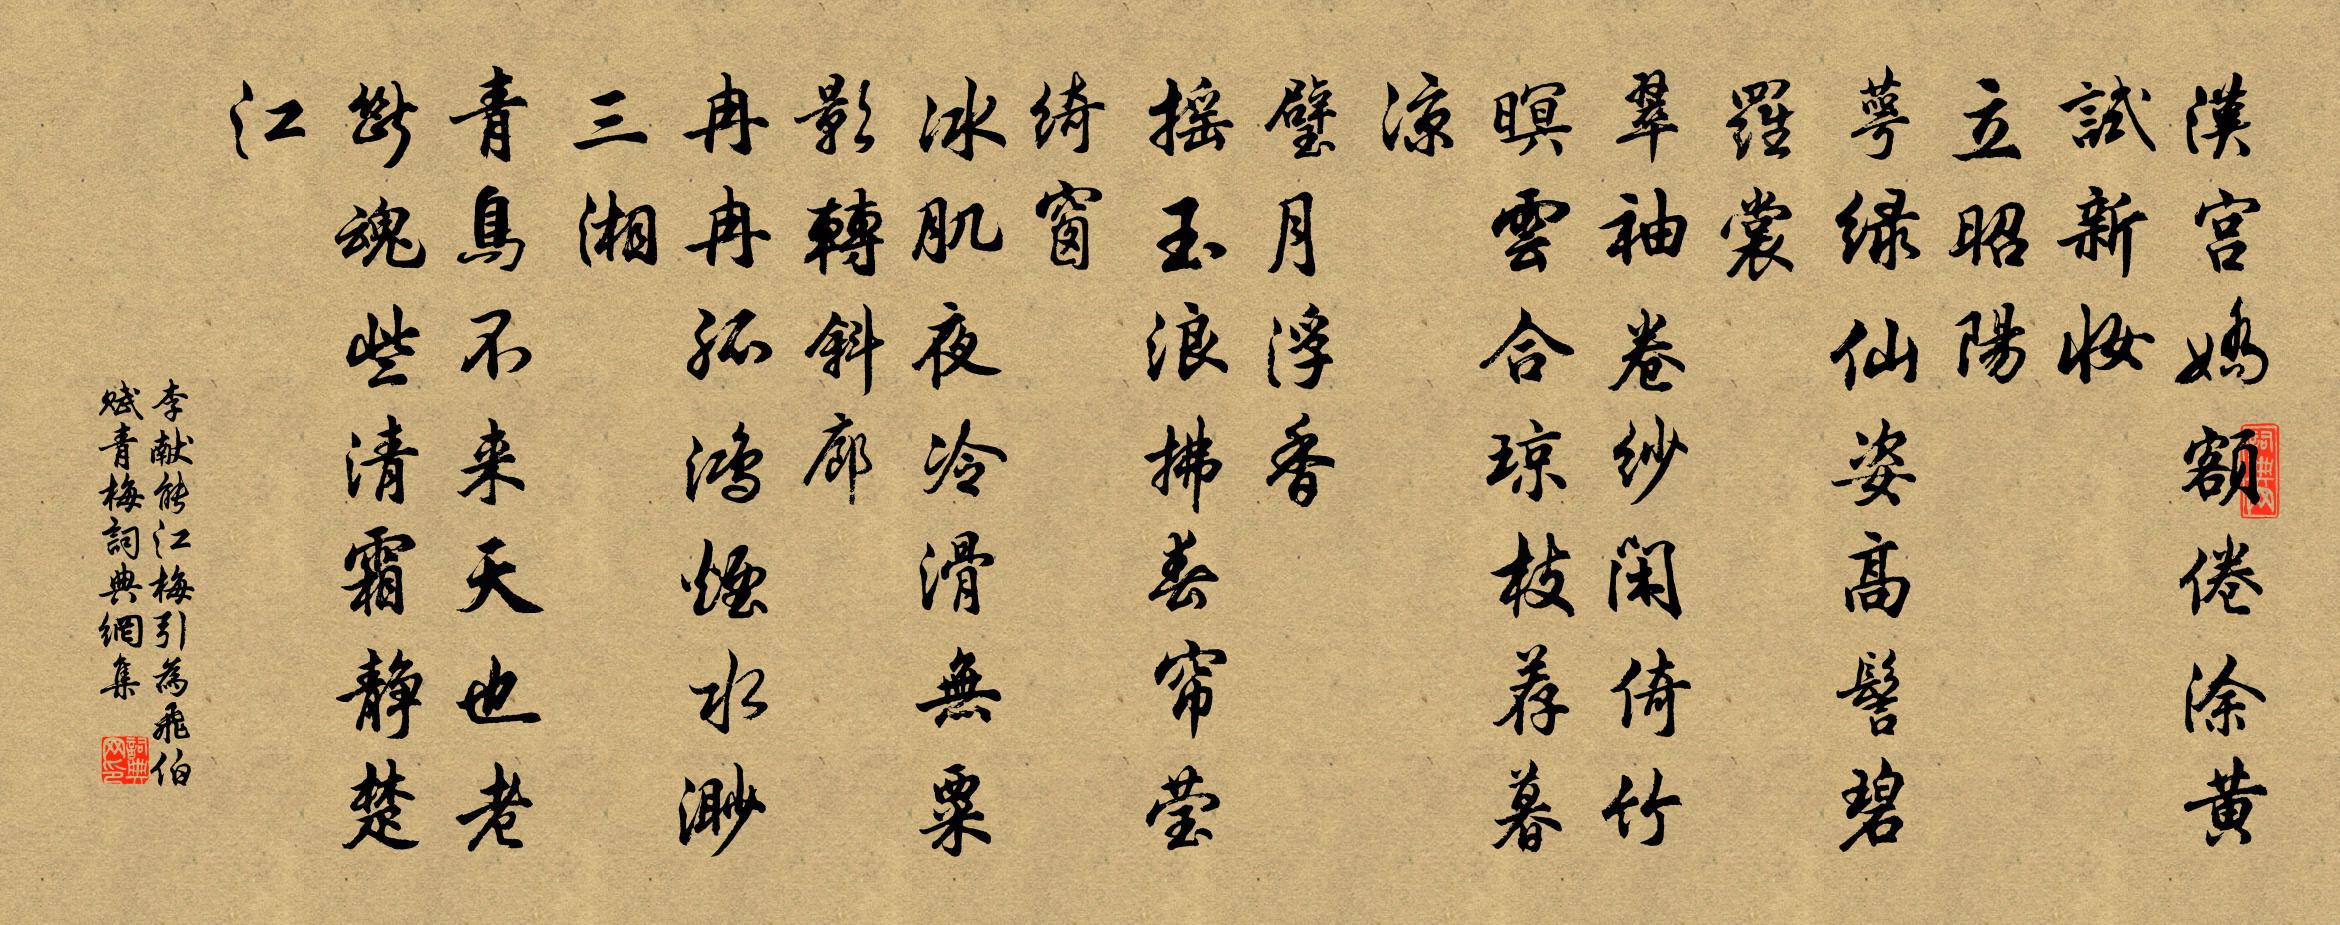 漢宮嬌額倦涂黄
試新妝
立昭陽
萼緑仙姿高髻碧
羅裳
翠袖卷紗閑倚竹
暝雲合琼枝荐暮
涼
璧月浮香
摇玉浪拂春帘莹
绮窗
冰肌夜冷滑無粟
影轉斜廊
冉冉孤鴻煙水渺
三湘
青鳥不来天也老
断魂些清霜静楚
江
李献能江梅引為飛伯
赋青梅詞典網集
詞典网印
詞典网